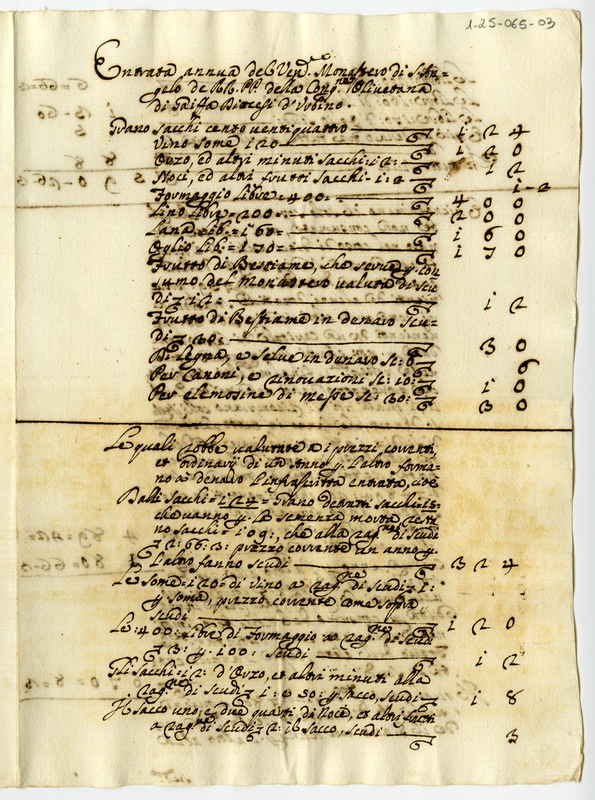 1-25-065-03
Entrata annua del Ven.e Monastero di S. An-
gelo de RR. PP. della Cong.ne Olivetana
di Gaiffa Diocesi d'Urbino.
Grano sacchi cento ventiquattro 124
Vino some 120 120
Orzo, ed altri minuti sacchi: 12: 12
Noci, ed altri frutti sacchi- 1:2 1-2
Formaggio libre 400: 400
Lino libre = 200 = 200
Lana lib: = 160 = 160
Oglio Lib: = 170 = 170
Frutto di Bestiame, che serve p. con
sumo del monastero valuta di scu
di z 12 = 12
Frutto di Bestiame in denaro scu-
di z 30: 30
Di legna, e selve in denaro sc: 6 6
Per Canoni, e rinovazioni sc: 10: 10
Per elemosine di messe sc: 30: 30
Le quali robbe valutate a i prezzi correnti,
et ordinarij di un Anno p. l'altro forma-
no a denaro l'infrascritta entrata, cioè
Dalli sacchi = 124 = Grano detratti sacchi = 15 =
che vanno p. la semenza morta, resti
no sacchi = 109:, che alla rag.ne di scudi
z 2: 66: 3: prezzo corrente un anno p.
l'altro fanno scudi 324
Le some = 120 = di vino a rag.ne di scudi z 1:
p. soma, prezzo corrente come sopra,
scudi 120
Le: 400: libre di Formaggio a rag.ne di scudi
z 3: p. 100: scudi 12
Gli sacchi = 12: d'Orzo, et altri minuti alla
rag.ne di scudi z 1: e 50: p. sacco, scudi 18
Il sacco uno, e due quarti di Noci, et altri frutti
a rag.ne di scudi z 2: il sacco, scudi 3